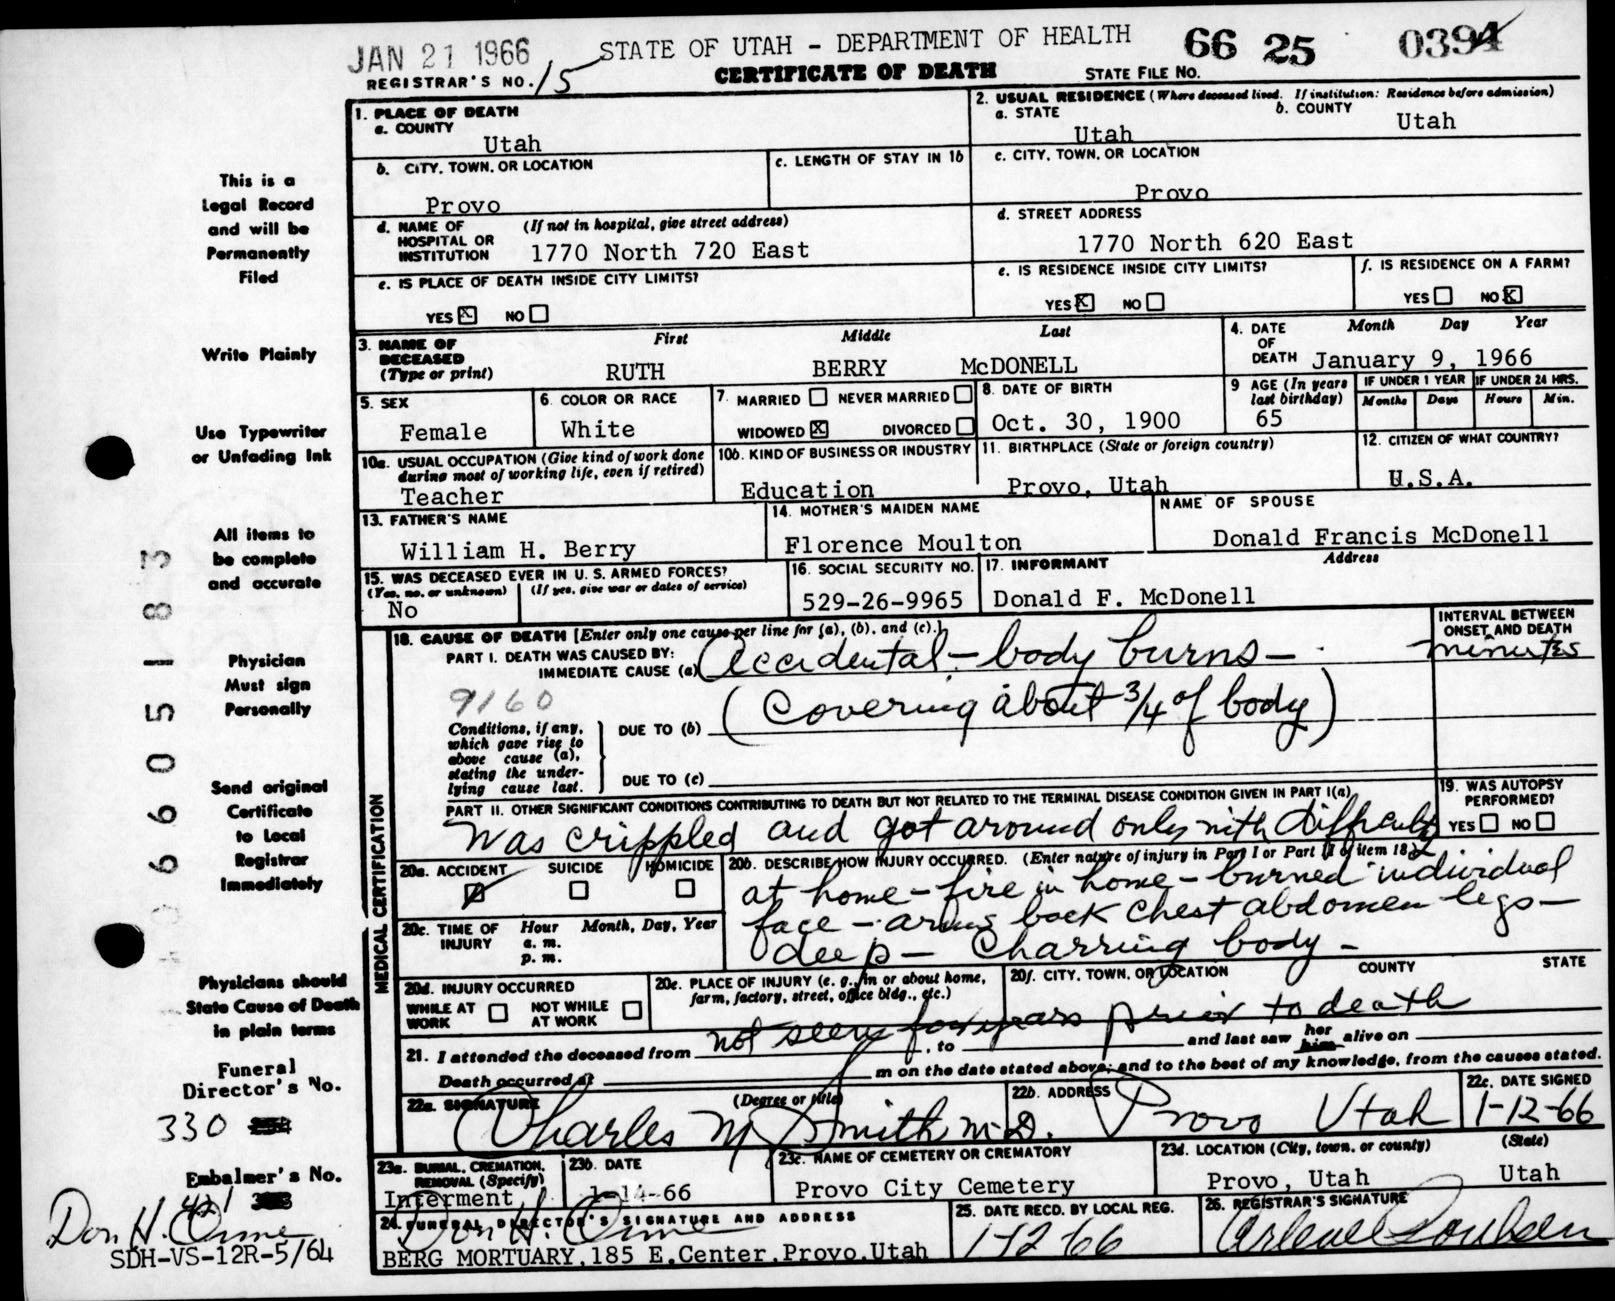 JAN 21 1966
STATE OF UTAH - DEPARTMENT OF HEALTH
66 25 0394
REGISTRAR'S NO. 15
CERTIFICATE OF DEATH
STATE FILE NO.
1. PLACE OF DEATH
a. COUNTY
Utah
2. USUAL RESIDENCE (Where deceased lived. If institution: Residence before admission)
a. STATE
Utah
b. COUNTY
Utah
b. CITY, TOWN, OR LOCATION
Provo
c. LENGTH OF STAY IN 1b
c. CITY, TOWN, OR LOCATION
Provo
d. NAME OF HOSPITAL OR INSTITUTION
(If not in hospital, give street address)
1770 North 720 East
d. STREET ADDRESS
1770 North 620 East
e. IS PLACE OF DEATH INSIDE CITY LIMITS?
YES X NO
e. IS RESIDENCE INSIDE CITY LIMITS?
YES X NO
f. IS RESIDENCE ON A FARM?
YES NO X
3. NAME OF DECEASED (Type or print)
First Middle Last
RUTH BERRY McDONELL
4. DATE OF DEATH
Month Day Year
January 9, 1966
5. SEX
Female
6. COLOR OR RACE
White
7. MARRIED NEVER MARRIED
WIDOWED X DIVORCED
8. DATE OF BIRTH
Oct. 30, 1900
9 AGE (In years last birthday)
65
IF UNDER 1 YEAR
Months Days
IF UNDER 24 HRS.
Hours Min.
10a. USUAL OCCUPATION (Give kind of work done during most of working life, even if retired)
Teacher
10b. KIND OF BUSINESS OR INDUSTRY
Education
11. BIRTHPLACE (State or foreign country)
Provo, Utah
12. CITIZEN OF WHAT COUNTRY?
U.S.A.
13. FATHER'S NAME
William H. Berry
14. MOTHER'S MAIDEN NAME
Florence Moulton
NAME OF SPOUSE
Donald Francis McDonell
15. WAS DECEASED EVER IN U. S. ARMED FORCES?
(Yes, no, or unknown) (If yes, give war or dates of service)
No
16. SOCIAL SECURITY NO.
529-26-9965
17. INFORMANT
Donald F. McDonell
Address
18. CAUSE OF DEATH [Enter only one cause per line for (a), (b), and (c).]
PART I. DEATH WAS CAUSED BY:
IMMEDIATE CAUSE (a) Accidental - body burns -
INTERVAL BETWEEN ONSET AND DEATH
minutes
9160
Conditions, if any, which gave rise to above cause (a), stating the underlying cause last.
DUE TO (b) (Covering about 3/4 of body)
DUE TO (c)
PART II. OTHER SIGNIFICANT CONDITIONS CONTRIBUTING TO DEATH BUT NOT RELATED TO THE TERMINAL DISEASE CONDITION GIVEN IN PART I(a)
Was crippled and got around only with difficulty
19. WAS AUTOPSY PERFORMED?
YES NO
20a. ACCIDENT SUICIDE HOMICIDE
20b. DESCRIBE HOW INJURY OCCURRED. (Enter nature of injury in Part I or Part II of item 18.)
at home - fire in home - burned individual
face - arms back chest abdomen legs -
deep - Charring body -
20c. TIME OF INJURY
Hour Month, Day, Year
a. m.
p. m.
20d. INJURY OCCURRED
WHILE AT WORK NOT WHILE AT WORK
20e. PLACE OF INJURY (e. g., in or about home, farm, factory, street, office bldg., etc.)
20f. CITY, TOWN, OR LOCATION COUNTY STATE
not seen for years prior to death
21. I attended the deceased from , to and last saw her him alive on
Death occurred at m on the date stated above; and to the best of my knowledge, from the causes stated.
22a. SIGNATURE (Degree or title)
Charles M Smith M.D.
22b. ADDRESS
Provo Utah
22c. DATE SIGNED
1-12-66
23a. BURIAL, CREMATION, REMOVAL (Specify)
Interment
23b. DATE
1-14-66
23c. NAME OF CEMETERY OR CREMATORY
Provo City Cemetery
23d. LOCATION (City, town, or county) (State)
Provo, Utah Utah
24. FUNERAL DIRECTOR'S SIGNATURE AND ADDRESS
Don H. Orme
BERG MORTUARY, 185 E.Center, Provo, Utah
25. DATE RECD. BY LOCAL REG.
1-12-66
26. REGISTRAR'S SIGNATURE
Arlene Poulsen
MEDICAL CERTIFICATION
This is a
Legal Record
and will be
Permanently
Filed
Write Plainly
Use Typewriter
or Unfading Ink
All items to
be complete
and accurate
Physician
Must sign
Personally
Send original
Certificate
to Local
Registrar
Immediately
Physicians should
State Cause of Death
in plain terms
Funeral
Director's No.
330
Embalmer's No.
421
Don H. Orme
SDH-VS-12R-5/64
66 05 183